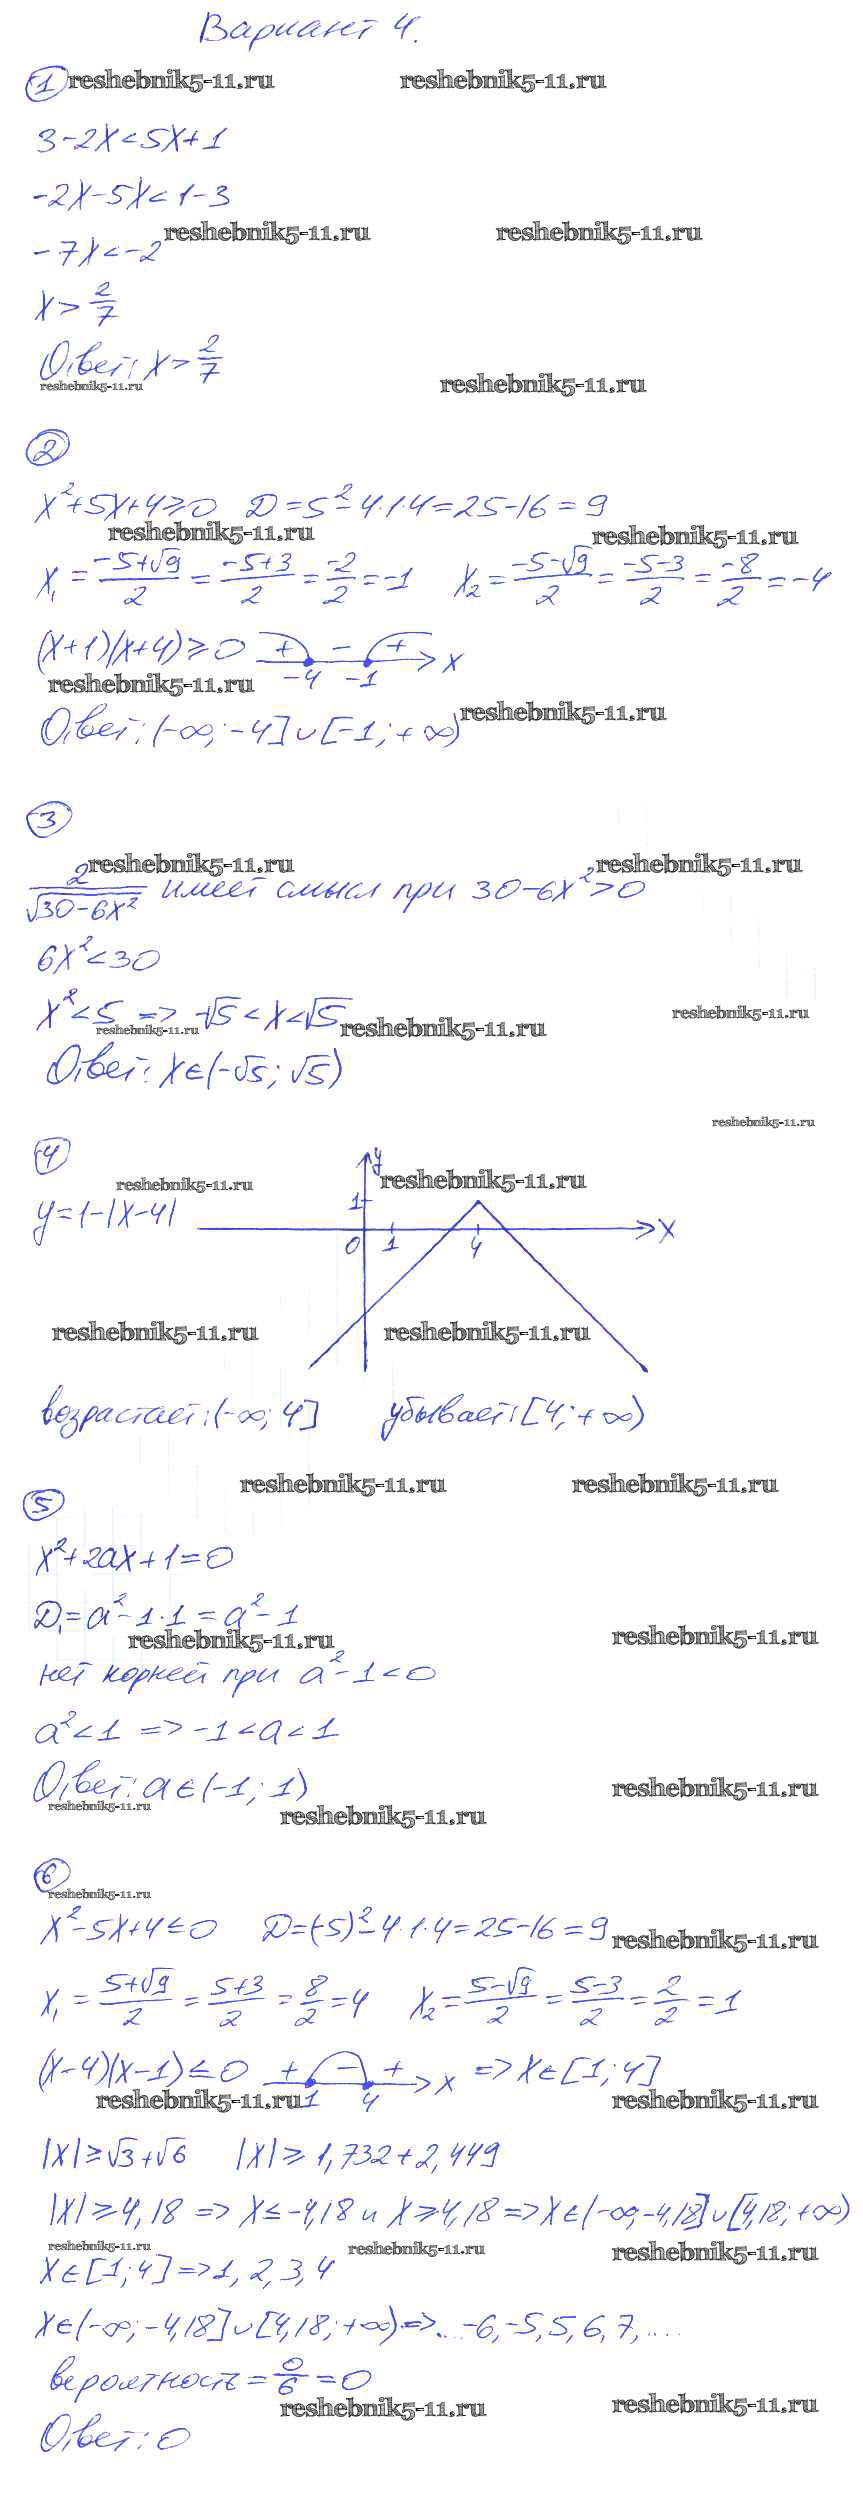 Вариант 4.
① reshebnik5-11.ru reshebnik5-11.ru
3-2x<5x+1
-2x-5x<1-3
reshebnik5-11.ru reshebnik5-11.ru
-7x<-2
x>2/7
Ответ: x>2/7
reshebnik5-11.ru reshebnik5-11.ru
②
x²+5x+4≥0 D=5²-4·1·4=25-16=9
reshebnik5-11.ru reshebnik5-11.ru
x₁=(-5+√9)/2=(-5+3)/2=-2/2=-1 x₂=(-5-√9)/2=(-5-3)/2=-8/2=-4
(x+1)(x+4)≥0 + - + x
-4 -1
reshebnik5-11.ru reshebnik5-11.ru
Ответ: (-∞; -4]∪[-1; +∞)
③
reshebnik5-11.ru reshebnik5-11.ru
2/√(30-6x²) имеет смысл при 30-6x²>0
6x²<30
x²<5 => -√5<x<√5
reshebnik5-11.ru reshebnik5-11.ru reshebnik5-11.ru
Ответ: x∈(-√5; √5)
reshebnik5-11.ru
④
reshebnik5-11.ru y reshebnik5-11.ru
y=1-|x-4| 1 x
0 1 4
reshebnik5-11.ru reshebnik5-11.ru
возрастает: (-∞; 4] убывает: [4; +∞)
reshebnik5-11.ru reshebnik5-11.ru
⑤
x²+2ax+1=0
D₁=a²-1·1=a²-1
reshebnik5-11.ru reshebnik5-11.ru
нет корней при a²-1<0
a²<1 => -1<a<1
Ответ: a∈(-1; 1)
reshebnik5-11.ru reshebnik5-11.ru reshebnik5-11.ru
⑥
reshebnik5-11.ru
x²-5x+4≤0 D=(-5)²-4·1·4=25-16=9
reshebnik5-11.ru
x₁=(5+√9)/2=(5+3)/2=8/2=4 x₂=(5-√9)/2=(5-3)/2=2/2=1
(x-4)(x-1)≤0 + - + x => x∈[1; 4]
1 4
reshebnik5-11.ru reshebnik5-11.ru
|x|≥√3+√6 |x|≥1,732+2,449
|x|≥4,18 => x≤-4,18 и x≥4,18 => x∈(-∞; -4,18]∪[4,18; +∞)
reshebnik5-11.ru reshebnik5-11.ru reshebnik5-11.ru
x∈[1; 4] => 1, 2, 3, 4
x∈(-∞; -4,18]∪[4,18; +∞) => ... -6, -5, 5, 6, 7, ....
вероятность=0/6=0
reshebnik5-11.ru reshebnik5-11.ru
Ответ: 0